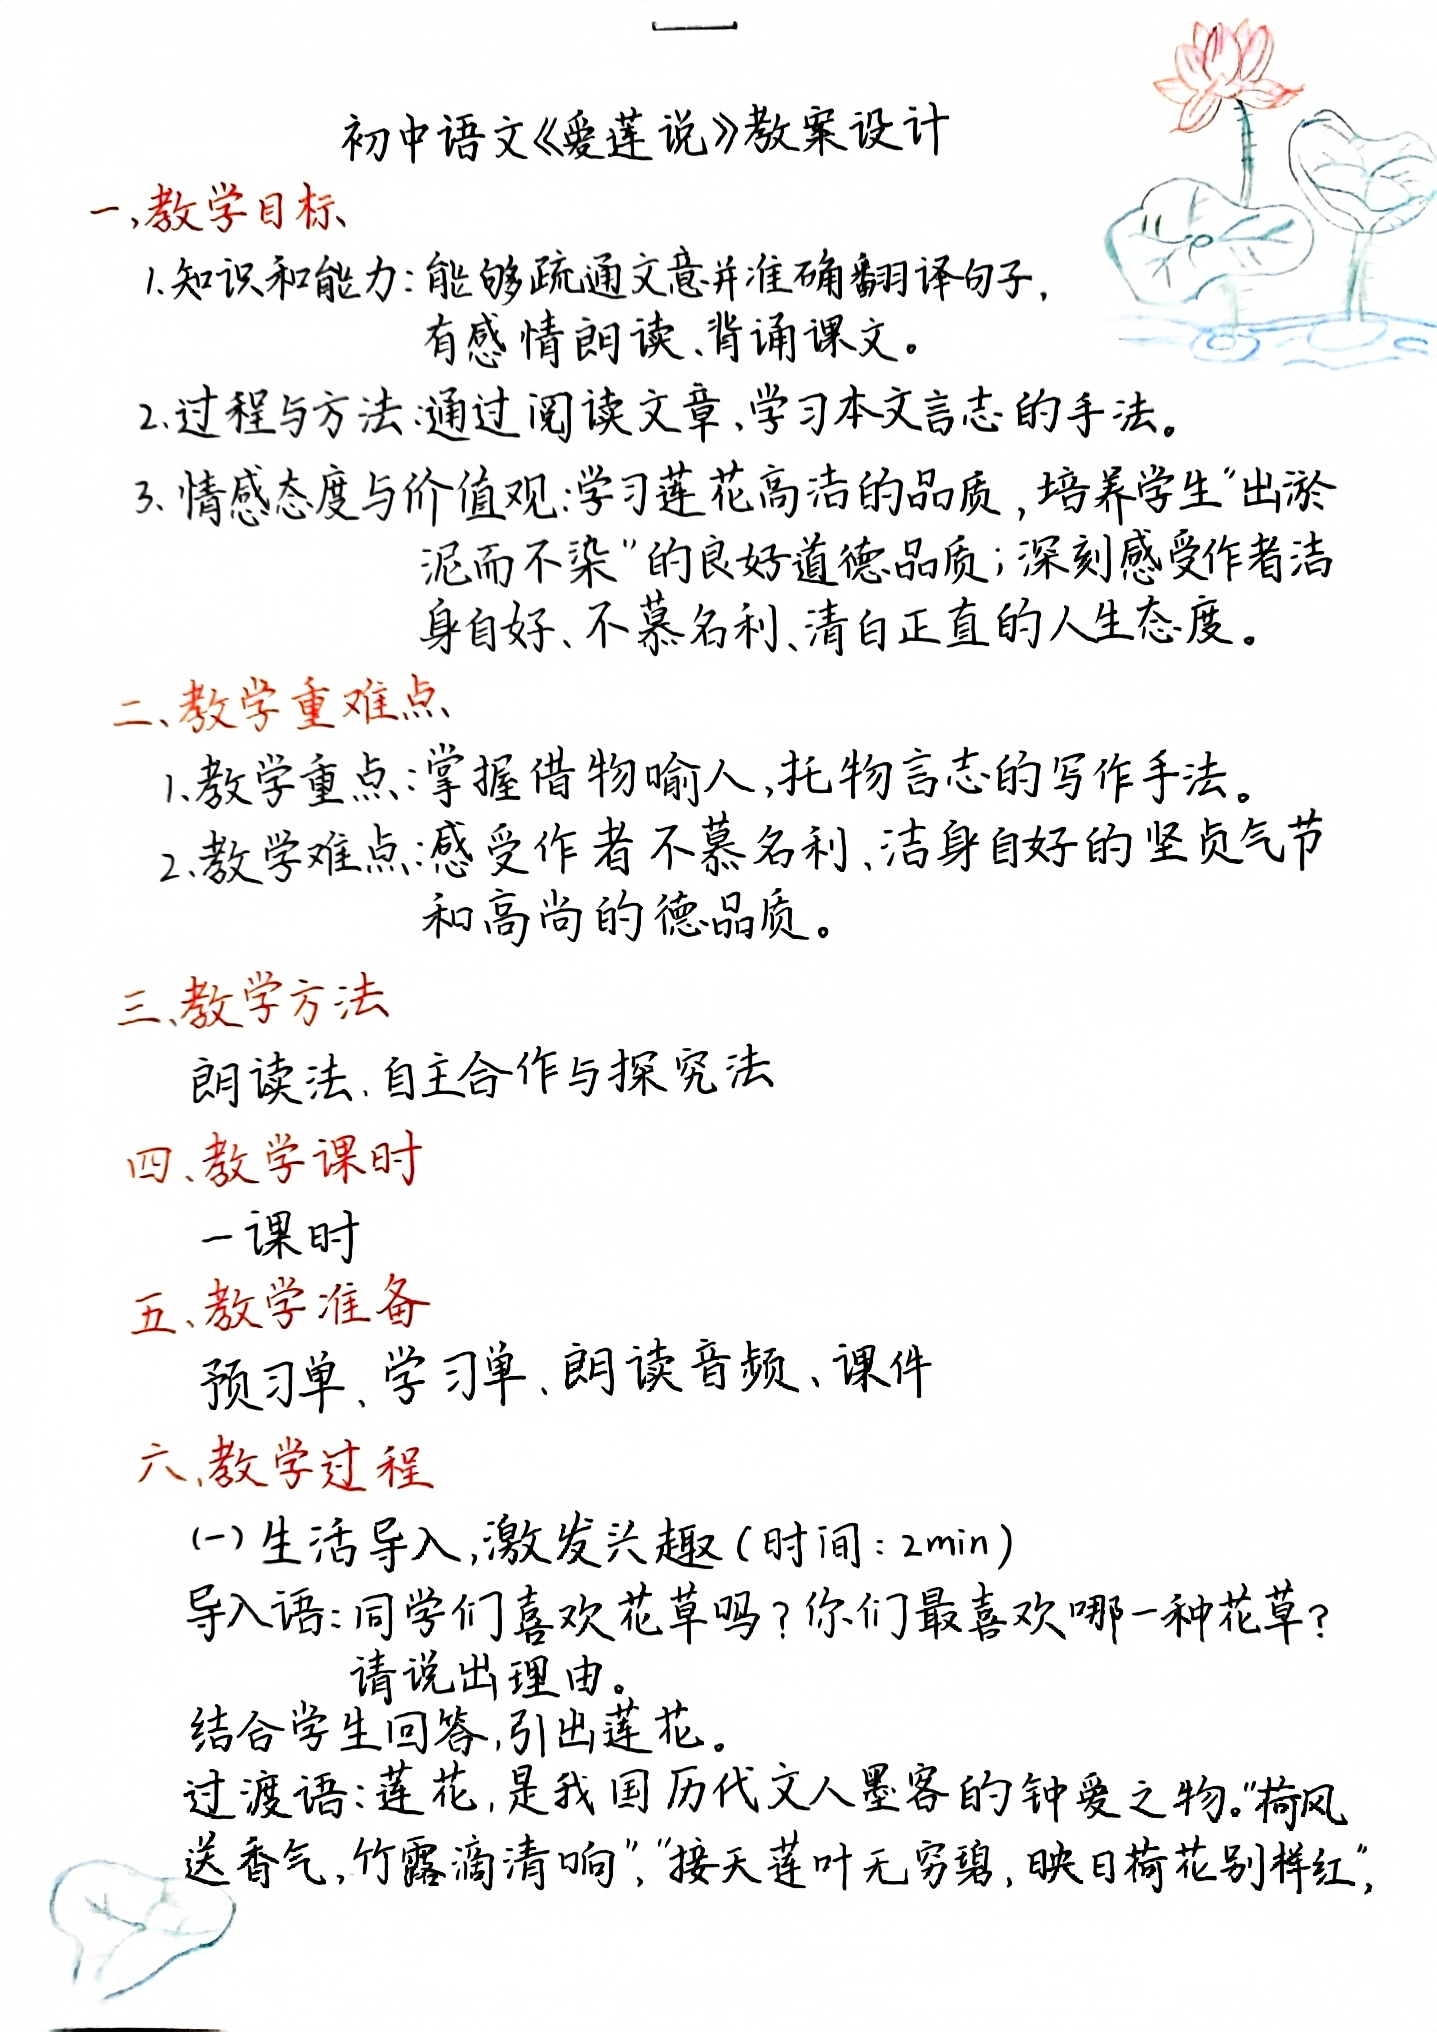 初中语文《爱莲说》教案设计
一、教学目标
1.知识和能力：能够疏通文意并准确翻译句子，
有感情朗读、背诵课文。
2.过程与方法：通过阅读文章，学习本文言志的手法。
3.情感态度与价值观：学习莲花高洁的品质，培养学生“出淤
泥而不染”的良好道德品质；深刻感受作者洁
身自好、不慕名利、清白正直的人生态度。
二、教学重难点
1.教学重点：掌握借物喻人，托物言志的写作手法。
2.教学难点：感受作者不慕名利、洁身自好的坚贞气节
和高尚的德品质。
三、教学方法
朗读法、自主合作与探究法
四、教学课时
一课时
五、教学准备
预习单、学习单、朗读音频、课件
六、教学过程
（一）生活导入，激发兴趣（时间：2min）
导入语：同学们喜欢花草吗？你们最喜欢哪一种花草？
请说出理由。
结合学生回答，引出莲花。
过渡语：莲花，是我国历代文人墨客的钟爱之物。“荷风
送香气，竹露滴清响”，“接天莲叶无穷碧，映日荷花别样红”，